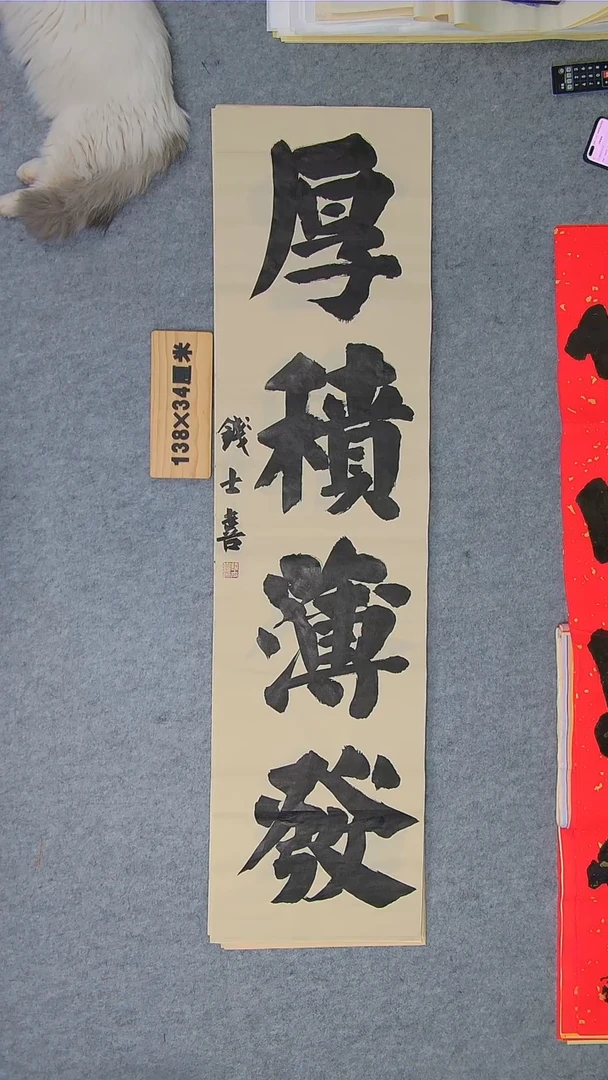 厚積薄發
錢士喜
138×34厘米